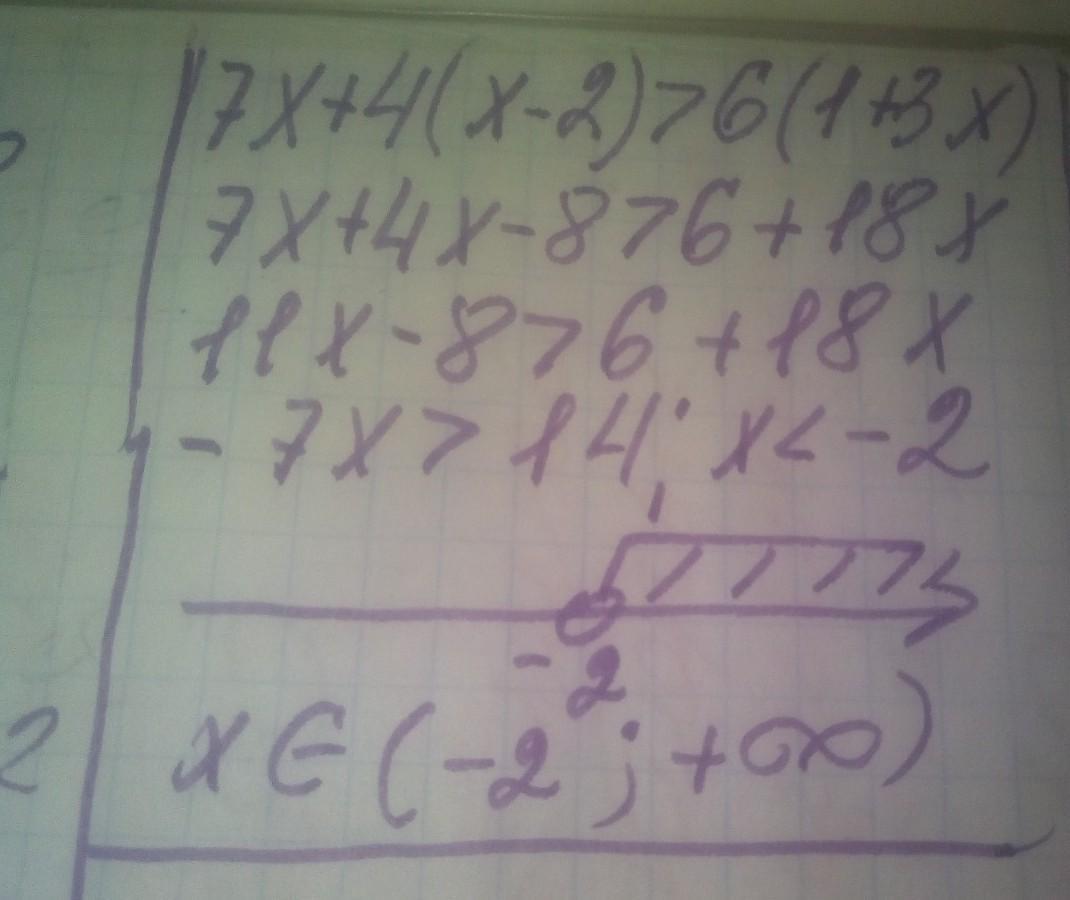 7x+4(x-2)>6(1+3x)
7x+4x-8>6+18x
11x-8>6+18x
-7x>14; x<-2
-2
x∈(-2; +∞)
2